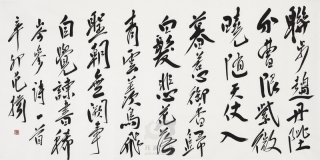 聯步趨丹陛
分曹限紫微
曉隨天仗入
暮惹御香歸
白髮悲花落
青雲羨鳥飛
聖朝無闕事
自覺諫書稀
岑參詩一首
辛卯